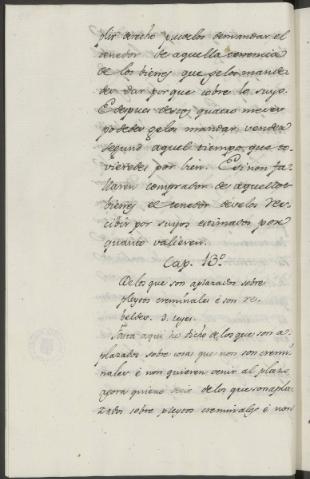 plir derecho puedelos demandar el
tenedor de aquella tenencia
de los bienes que gelos mande
dar porque sobre lo suyo.
E despues desos quatro meses
puedegelos mandar vender
segund aquel tiempo que to
vieredes por bien. E si non fa
llaren comprador de aquellos
bienes el tenedor develos re
cibir por suyos estimados por
quanto valieren.
Cap. 13.º
De los que son aplazados sobre
pleytos creminales é son re
beldes. 3. leyes.
Fasta aqui he dicho de los que son a
plazados sobre cosas que non son cremi
nales é non quieren venir al plazo
agora quiero decir de los que son apla
zados sobre pleytos creminales é non